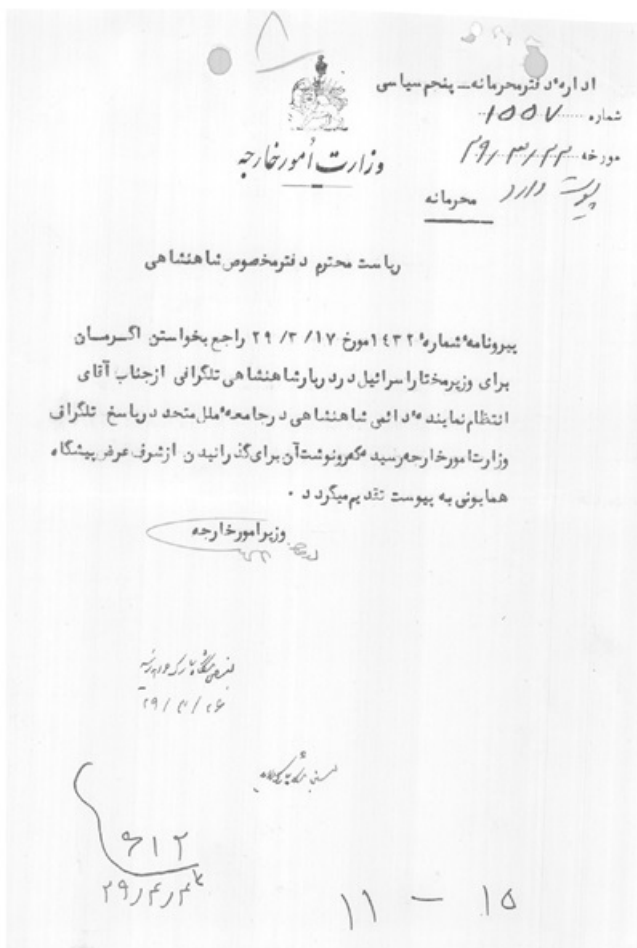 اداره دفتر محرمانه ـ پنجم سیاسی
شماره ۱۵۵۷
مورخه ۲۹/۳/۲۳
پیوست دارد
محرمانه
وزارت اُمور خارجه
ریاست محترم دفتر مخصوص شاهنشاهی
پیرو نامه شماره ۱۴۳۲ مورخ ۱۷/ ۳/ ۲۹ راجع بخواستن اگـرمـان
برای وزیر مختار اسرائیل در دربار شاهنشاهی تلگرافی از جناب آقای
انتظام نماینده دائمی شاهنشاهی در جامعه ملل متحد در پاسخ تلگراف
وزارت امور خارجه رسید که رونوشت آن برای گذرانیدن از شرف عرض پیشگاه
همایونی به پیوست تقدیم میگردد .
وزیر امور خارجه
۶۱۲
۱۱ – ۱۵